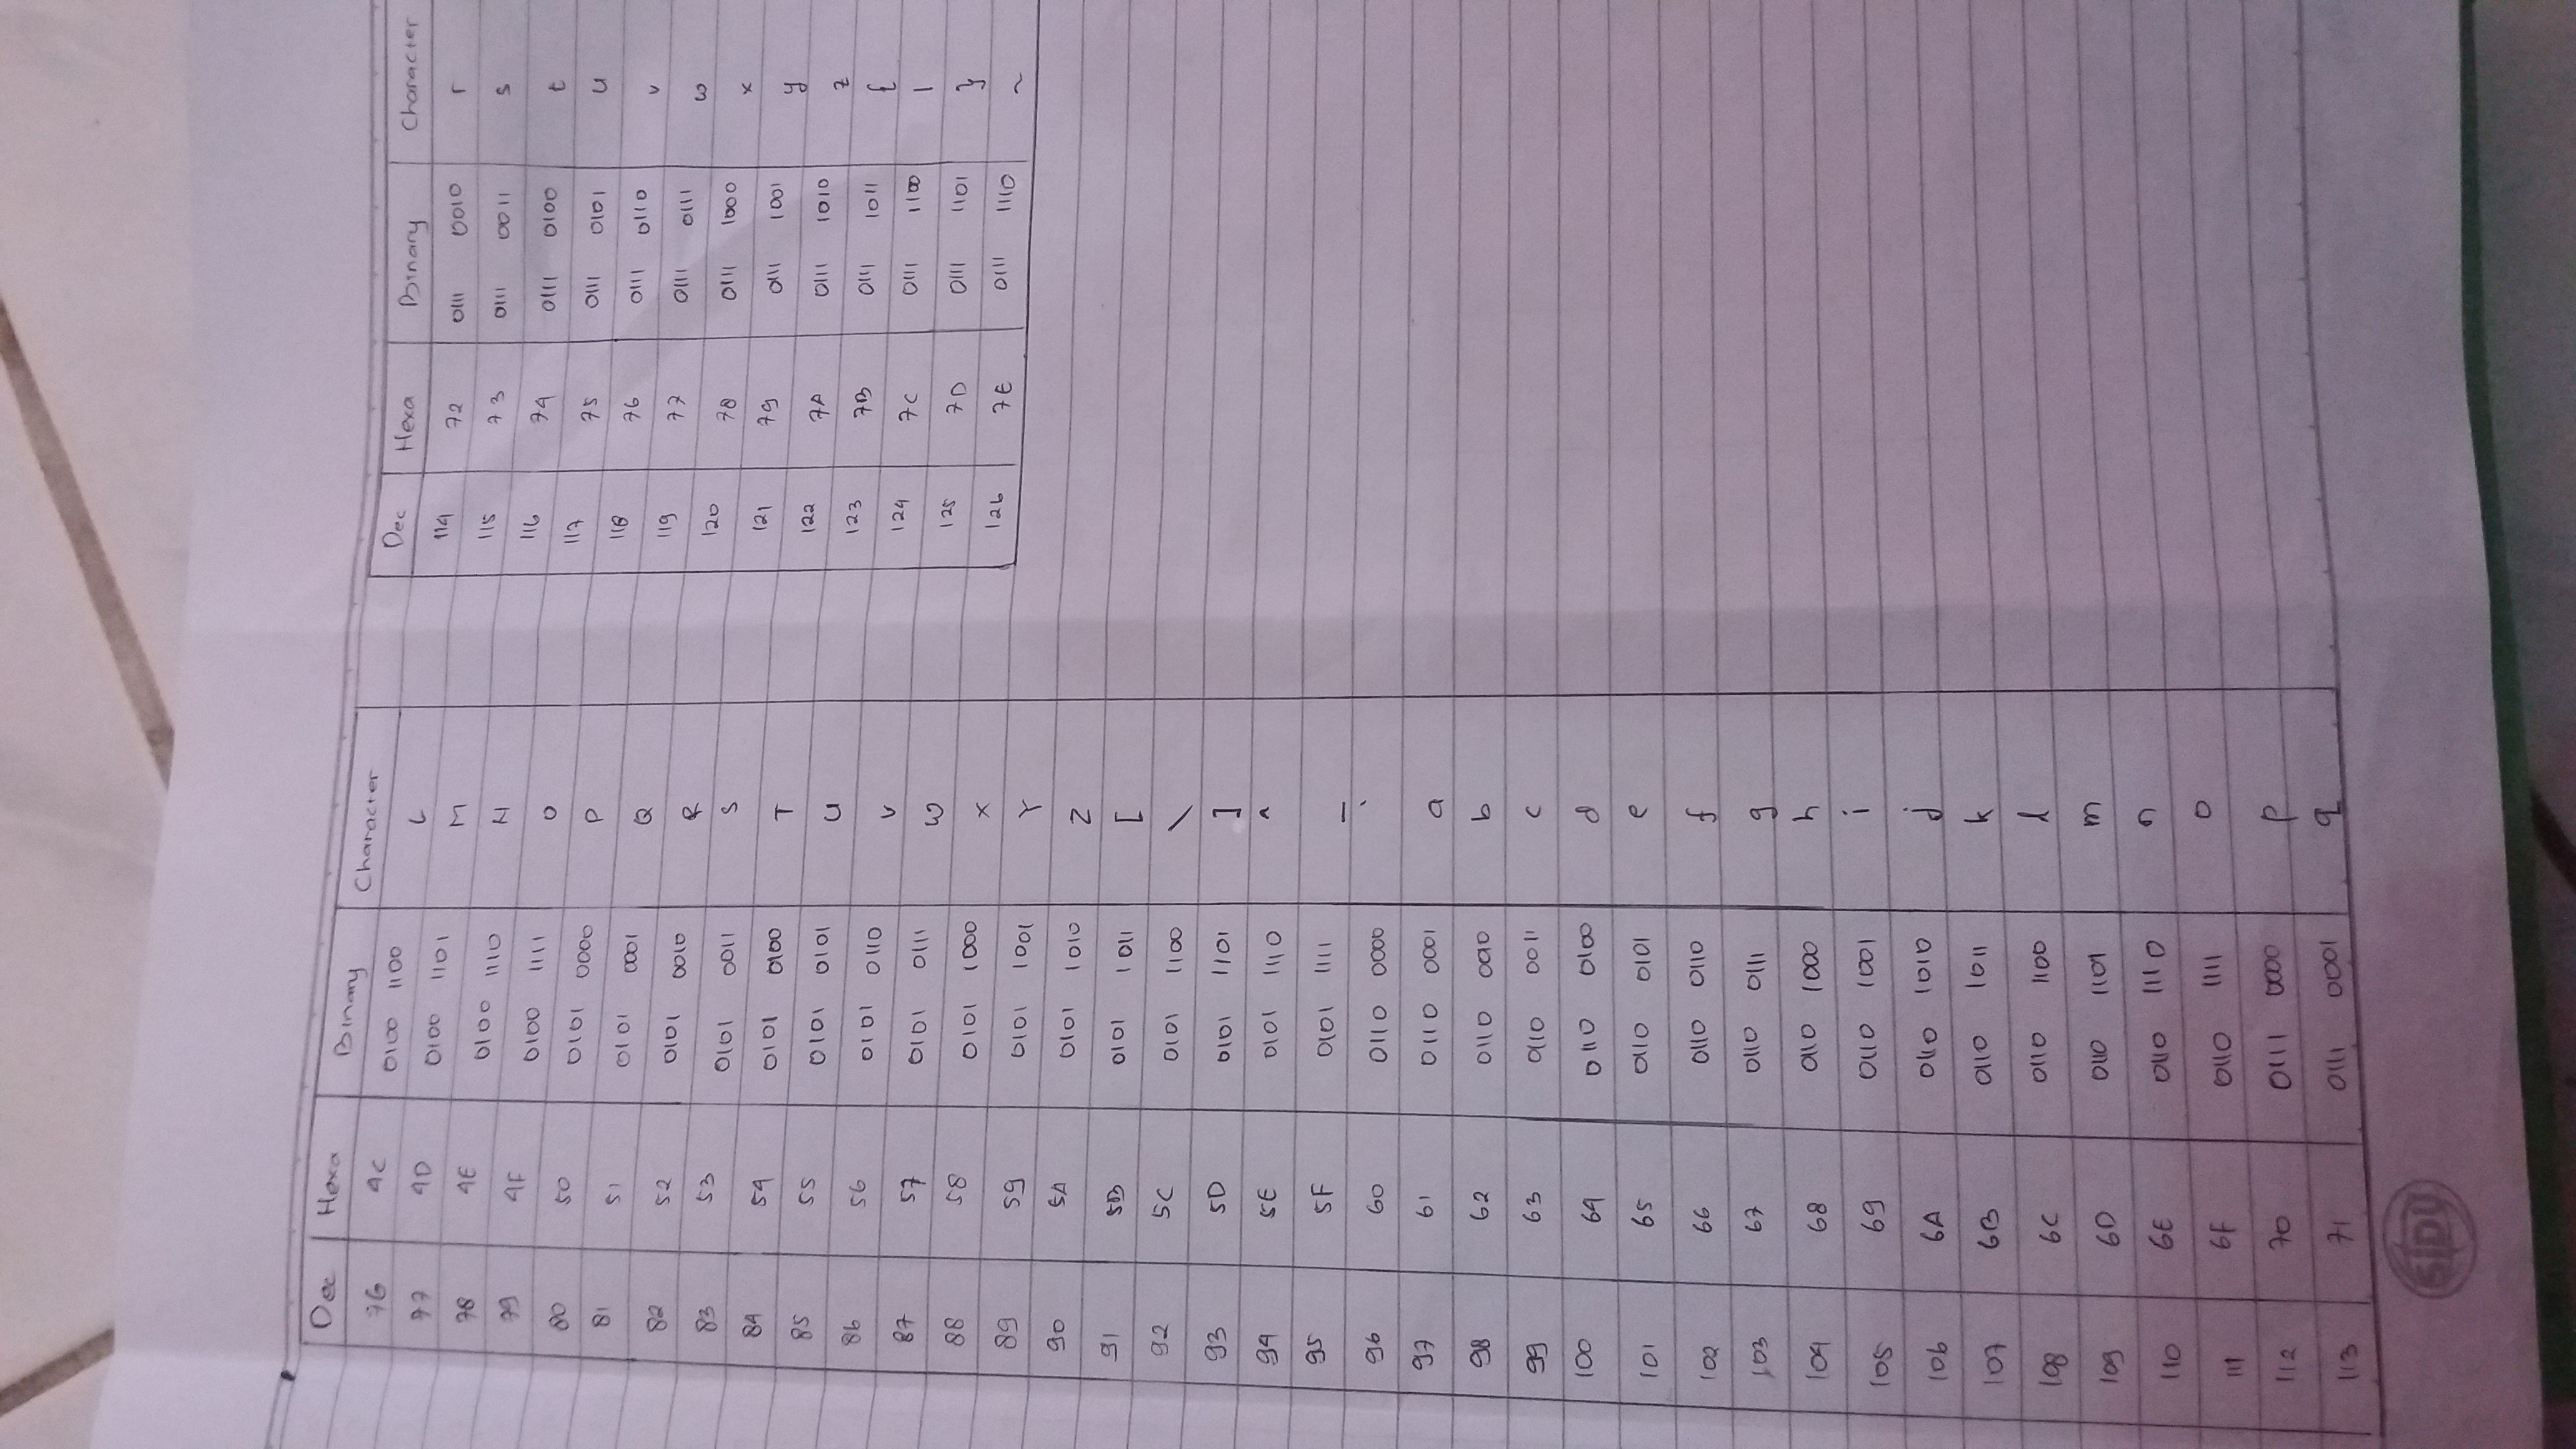 Dec Hexa Binary Character
76 4C 0100 1100 L
77 4D 0100 1101 M
78 4E 0100 1110 N
79 4F 0100 1111 O
80 50 0101 0000 P
81 51 0101 0001 Q
82 52 0101 0010 R
83 53 0101 0011 S
84 54 0101 0100 T
85 55 0101 0101 U
86 56 0101 0110 V
87 57 0101 0111 W
88 58 0101 1000 X
89 59 0101 1001 Y
90 5A 0101 1010 Z
91 5B 0101 1011 [
92 5C 0101 1100 \
93 5D 0101 1101 ]
94 5E 0101 1110 ^
95 5F 0101 1111 _
96 60 0110 0000 `
97 61 0110 0001 a
98 62 0110 0010 b
99 63 0110 0011 c
100 64 0110 0100 d
101 65 0110 0101 e
102 66 0110 0110 f
103 67 0110 0111 g
104 68 0110 1000 h
105 69 0110 1001 i
106 6A 0110 1010 j
107 6B 0110 1011 k
108 6C 0110 1100 l
109 6D 0110 1101 m
110 6E 0110 1110 n
111 6F 0110 1111 o
112 70 0111 0000 p
113 71 0111 0001 q
Dec Hexa Binary Character
114 72 0111 0010 r
115 73 0111 0011 s
116 74 0111 0100 t
117 75 0111 0101 u
118 76 0111 0110 v
119 77 0111 0111 w
120 78 0111 1000 x
121 79 0111 1001 y
122 7A 0111 1010 z
123 7B 0111 1011 {
124 7C 0111 1100 |
125 7D 0111 1101 }
126 7E 0111 1110 ~
SIDU